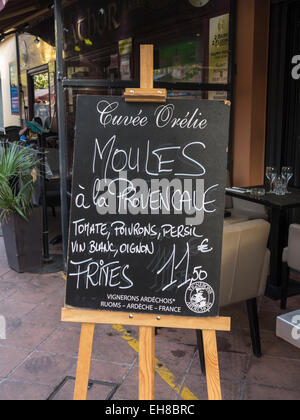 Cuvée Orélie
MOULES
à la PROVENCALE
TOMATE, POIVRONS, PERSIL
VIN BLANC, OIGNON
FRÎTES 11€50
VIGNERONS ARDÉCHOIS
RUOMS - ARDÈCHE - FRANCE
alamy
Image ID: E8F8RC
www.alamy.com